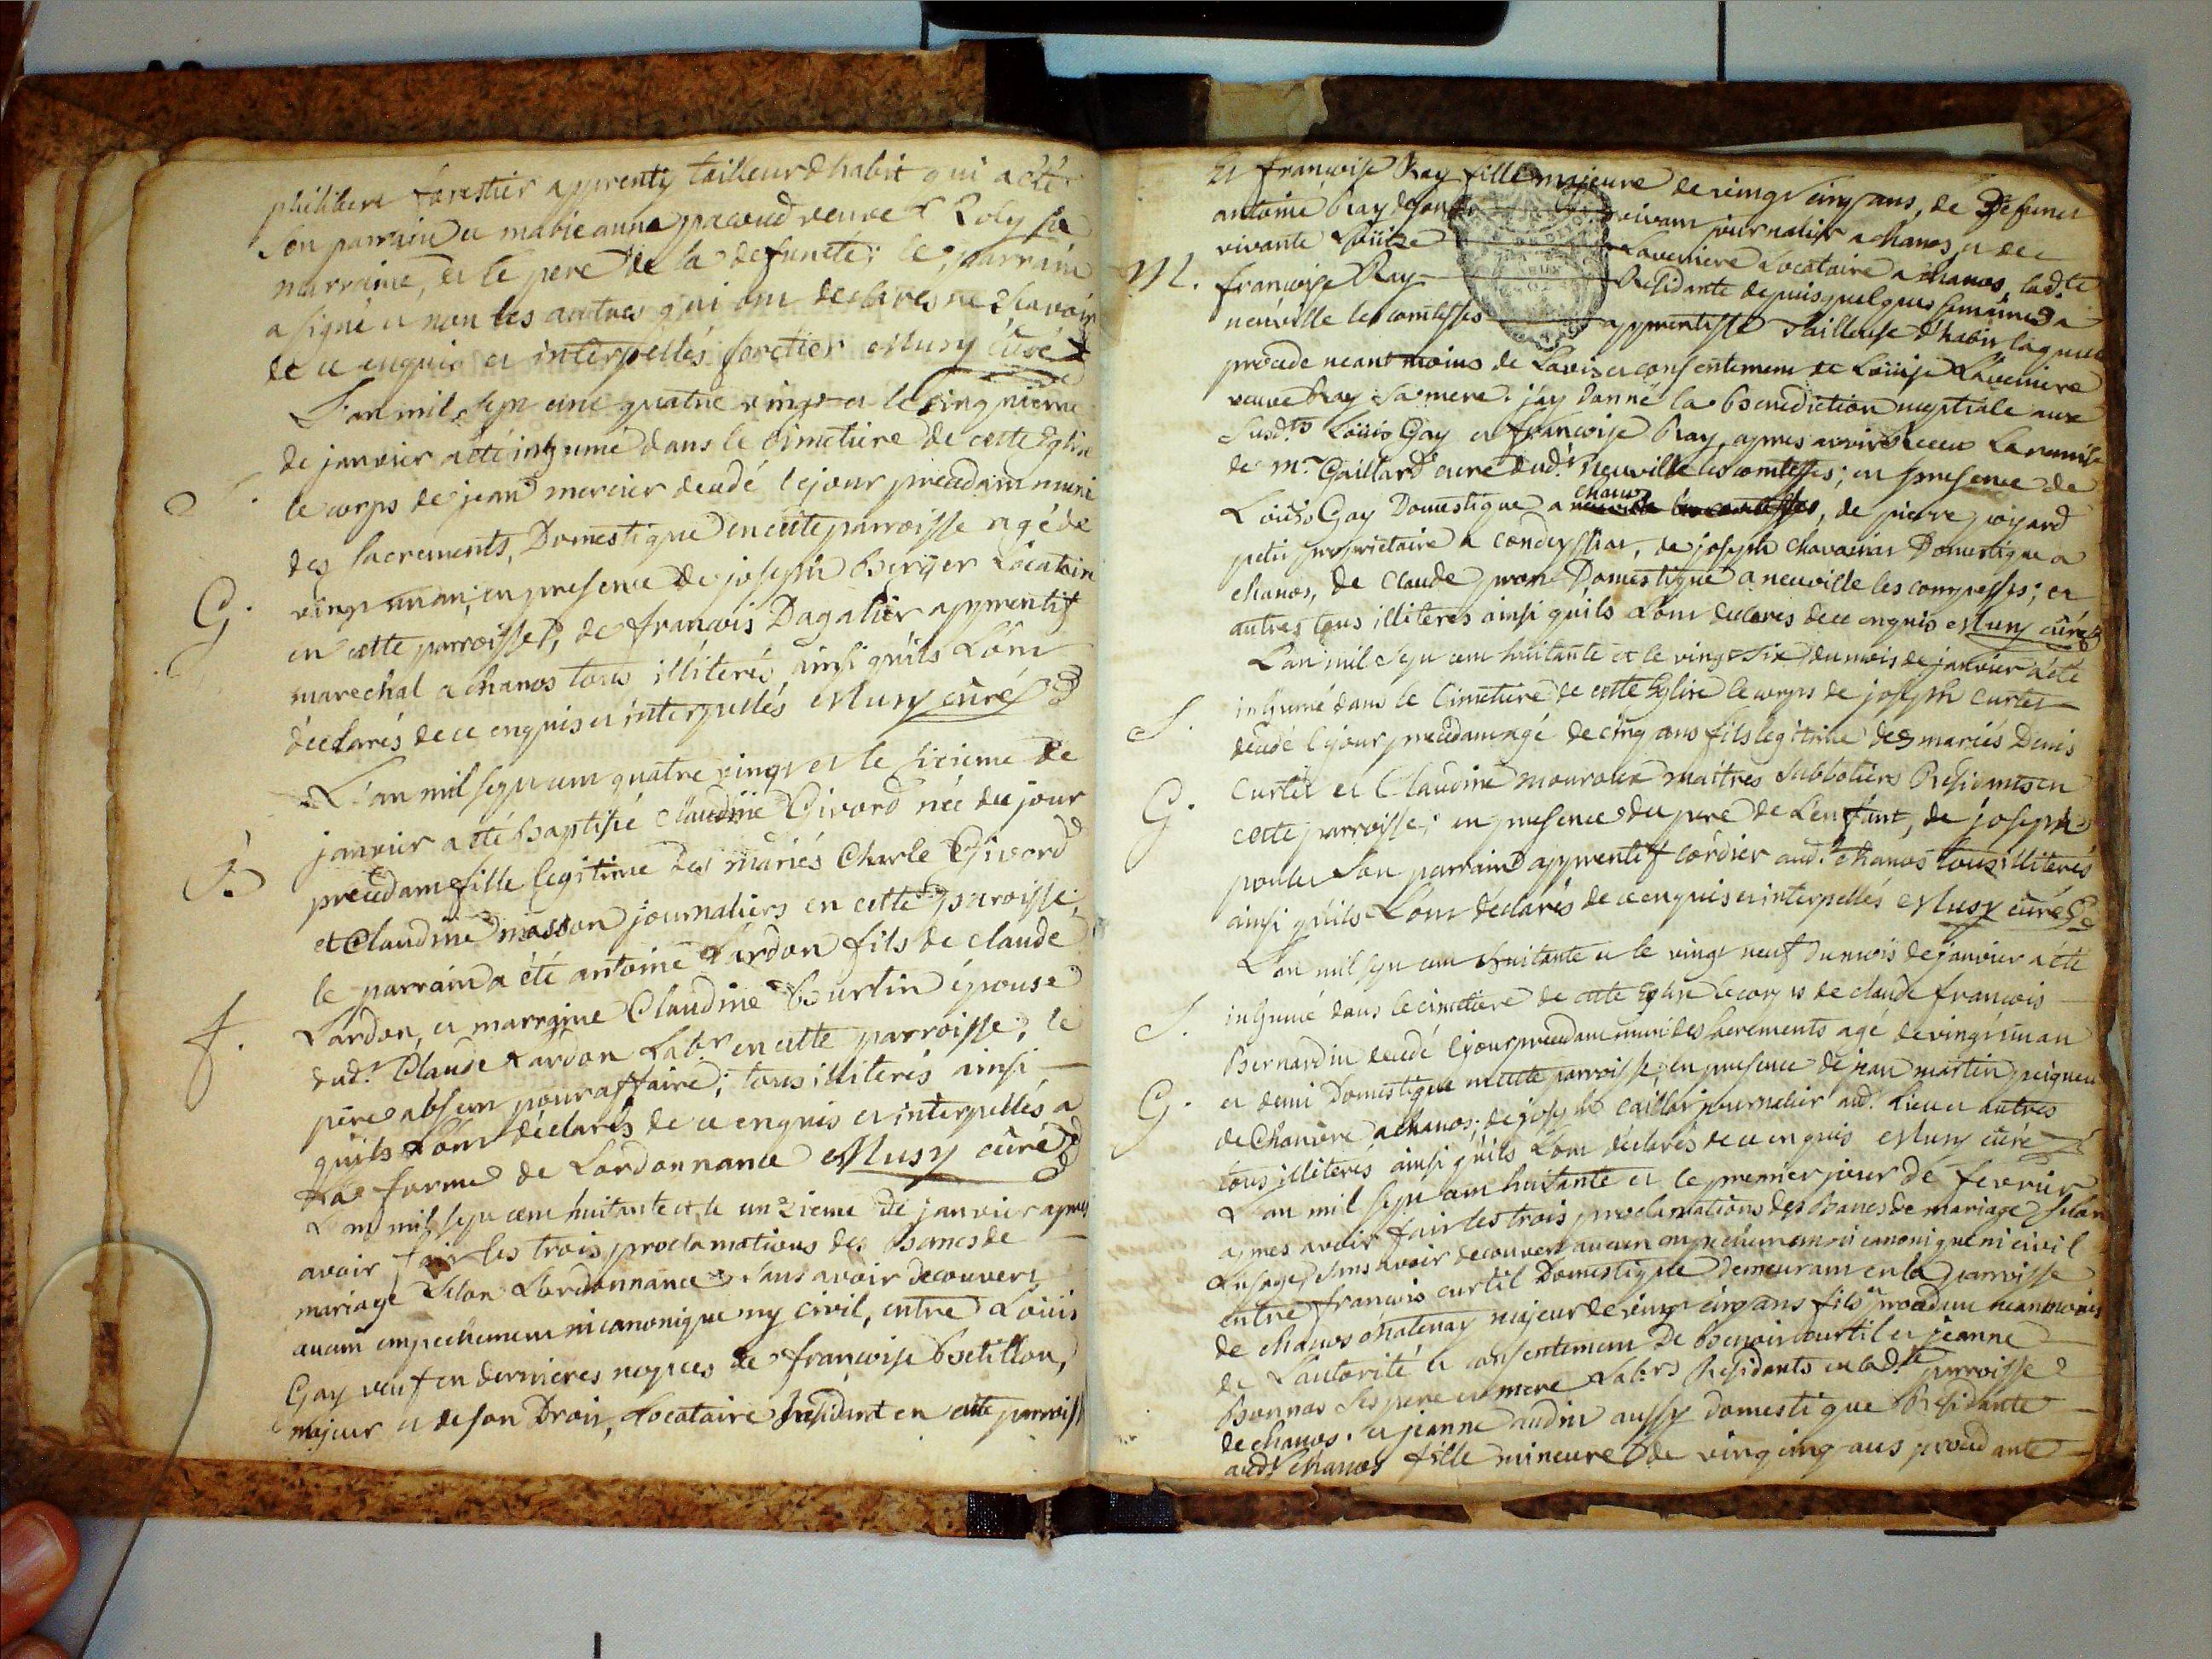 philibert forestier apprenty tailleur d'habit qui a été
son parrain et marie anne pacoud veuve Roly sa
marraine, et le pere de la defuncte; le parrain
a signé et non les autres qui ont declarés ne sçavoir
de ce enquis et interpellés foretier Musy curé
L'an mil sept cent quatre vingt et le cinquieme
de janvier a été inhumé dans le cimetiere de cette Eglise
S.
le corps de jean mercier decedé le jour precedant muni
des sacrements, Domestique en cette parroisse agé de
G.
vingt un an; en presence de joseph Berger Locataire
en cette parroisse, de francois Dagalier apprentif
marechal a chanos tous illiterés ainsi quils l'ont
déclarés de ce enquis et interpellés Musy curé
L'an mil sept cent quatre vingt et le sixieme de
janvier a été baptisé claudine Givord née du jour
B.
precedant fille legitime des mariés Charle Givord
et Claudine masson journaliers en cette parroisse;
le parrain a été antoine Lardon fils de claude
f.
Lardon, et marraine Claudine burtin épouse
dud.t Claude Lardon Lab.r en cette parroisse; le
père absent pour affaire; tous illiterés ainsi
quils l'ont déclarés de ce enquis et interpellés a
La forme de Lordonnance Musy curé
L'an mil sept cent huitante et le unzieme de janvier apres
avoir fait les trois proclamations des bancs de
mariage selon Lordonnance sans avoir decouvert
aucun empechement ni canonique ny civil, entre Loüis
Gay veuf en dernieres nopces de francoise betillon,
majeur et de son Droit, Locataire Résidant en cette parroisse
Et francoise Ray fille majeure de vingt cinq ans, de Defunct
antoine Ray vivant journalier a chanos, et de
vivante Loüise Laveniere Locataire a chanos, lad.te
M.
francoise Ray Residante depuis quelques semaines a
neuville les comtesses apprentisse Tailleuse d'habit laquelle
procede neantmoins de L'avis et consentement de Loüise Laveniere
veuve Ray sa mere. j'ay donné la Benediction nuptiale aux
susd.ts Loüis Gay et francoise Ray, apres avoir Receu La remise
de m.r Gaillard curé dud.t Neuville les comtesses; en presence de
Loüis Gay Domestique a chanos neuville les comtesses, de pierre poyard
petit proprietaire a condeyssiat, de joseph chavairias Domestique a
chanos, de Claude pron Domestique a neuville les compesses; et
autres tous illiterés ainsi quils l'ont declarés de ce enquis Musy curé
L'an mil sept cent huitante et le vingt six du mois de janvier a été
inhumé dans le Cimetiere de cette Eglise le corps de joseph curtet
S.
decedé le jour precedant agé de cinq ans fils legitime des mariés Denis
Curtet et Claudine mouroux maitres sabbotiers Residants en
G.
cette parroisse; en presence du pere de L'enfant, de joseph
poulet son parrain apprentif cordier aud.t chanos tous illiterés
ainsi quils l'ont déclarés de ce enquis et interpellés Musy curé
L'an mil sept cent huitante et le vingt neuf du mois de janvier a été
inhumé dans le cimetiere de cette Eglise le corps de claude francois
S.
Bernardin decedé le jour precedant muni des sacrements agé de vingt un an
et demi Domestique en cette parroisse; en presence de jean martin peigneur
G.
de Chanvre a chanos; de joseph Caillat journalier aud.t lieu et autres
tous illiterés ainsi quils l'ont déclarés de ce enquis Musy curé
L'an mil sept cent huitante et le premier jour de fevrier
apres avoir fait les trois proclamations des Bancs de mariage selon
L'usage, sans avoir decouvert aucun empechement ni canonique ni civil
entre francois curtil Domestique demeurant en la parroisse
de chanos chatenay majeur de vingt cinq ans fils procedant neantmoins
de L'autorité et consentement De Benoit Curtil et jeanne
Bonnat ses pere et mere Lab.rs Residants en lad.te parroisse
de chanos. et jeanne audin aussy domestique Residante
aud.t chanos fille mineure de vingt cinq ans procedante